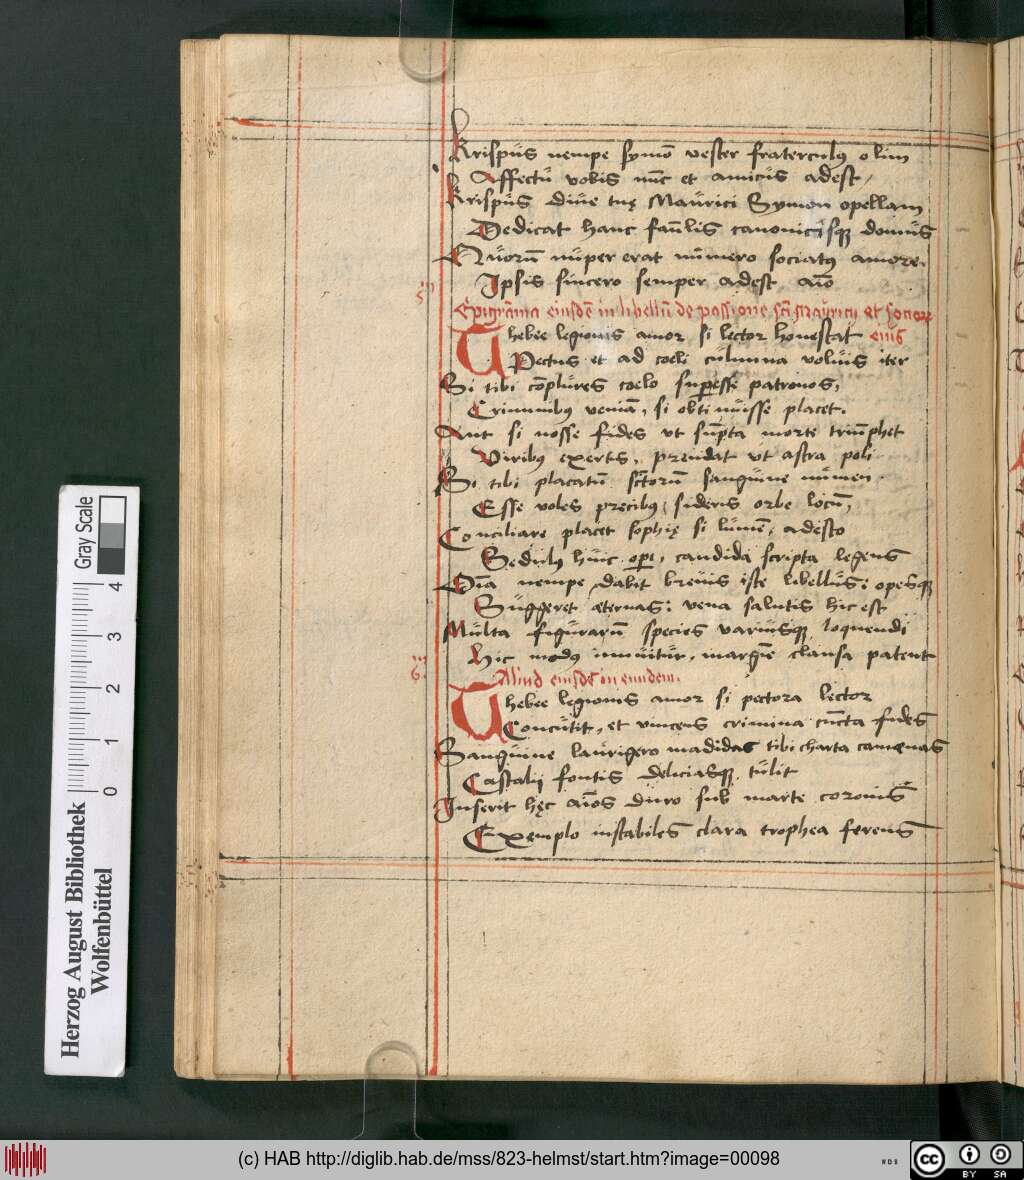 Krispus nempe symō vester fraterculꝰ olim
Affectu vobis nūc et amicus adest,
Krispus diue tuę Maurici Symon opellam
Dedicat hanc faūlis canonicisqꝫ domus
Quorū nuper erat numero sociatꝰ amore.
Ipsis sincero semper adest aīo
5
Epigrāma eiusdē in libellū de passione scī Mauricij et honore
Thebee legionis amor si lector honestat eius
Pectus et ad coeli culmina voluis iter
Si tibi cōplures coelo supesse patronos,
Criminibꝰ veniā, si obtinuisse placet.
Aut si nosse fides vt sūpta morte triūphet
Viribꝰ exertis, prendat vt astra poli
Si tibi placatū sctorū sanguine numen
Esse voles precibꝰ, sideris orbe locū,
Conciliare placet sophię si lumē, adesto
Sedulꝰ huic opi, candida scripta legens
Oīa nempe dabit breuis iste libellus: opesqꝫ
Suggeret æternas: vena salutis hic est
Multa figurarū species variusqꝫ loquendi
Hic modꝰ inuitur, margīe clausa patent
6.
Aliud eiusdē in eundem.
Thebee legionis amor si pectora lector
Concutit, et vincens crimina cūcta fides
Sanguine laurigero madidas tibi charta camenas
Castalij fontis deliciasqꝫ tulit
Inserit hęc aīos duro sub marte coronis
Exemplo instabiles clara trophea ferens
Gray Scale
0 1 2 3 4
Herzog August Bibliothek
Wolfenbüttel
(c) HAB http://diglib.hab.de/mss/823-helmst/start.htm?image=00098
cc BY SA